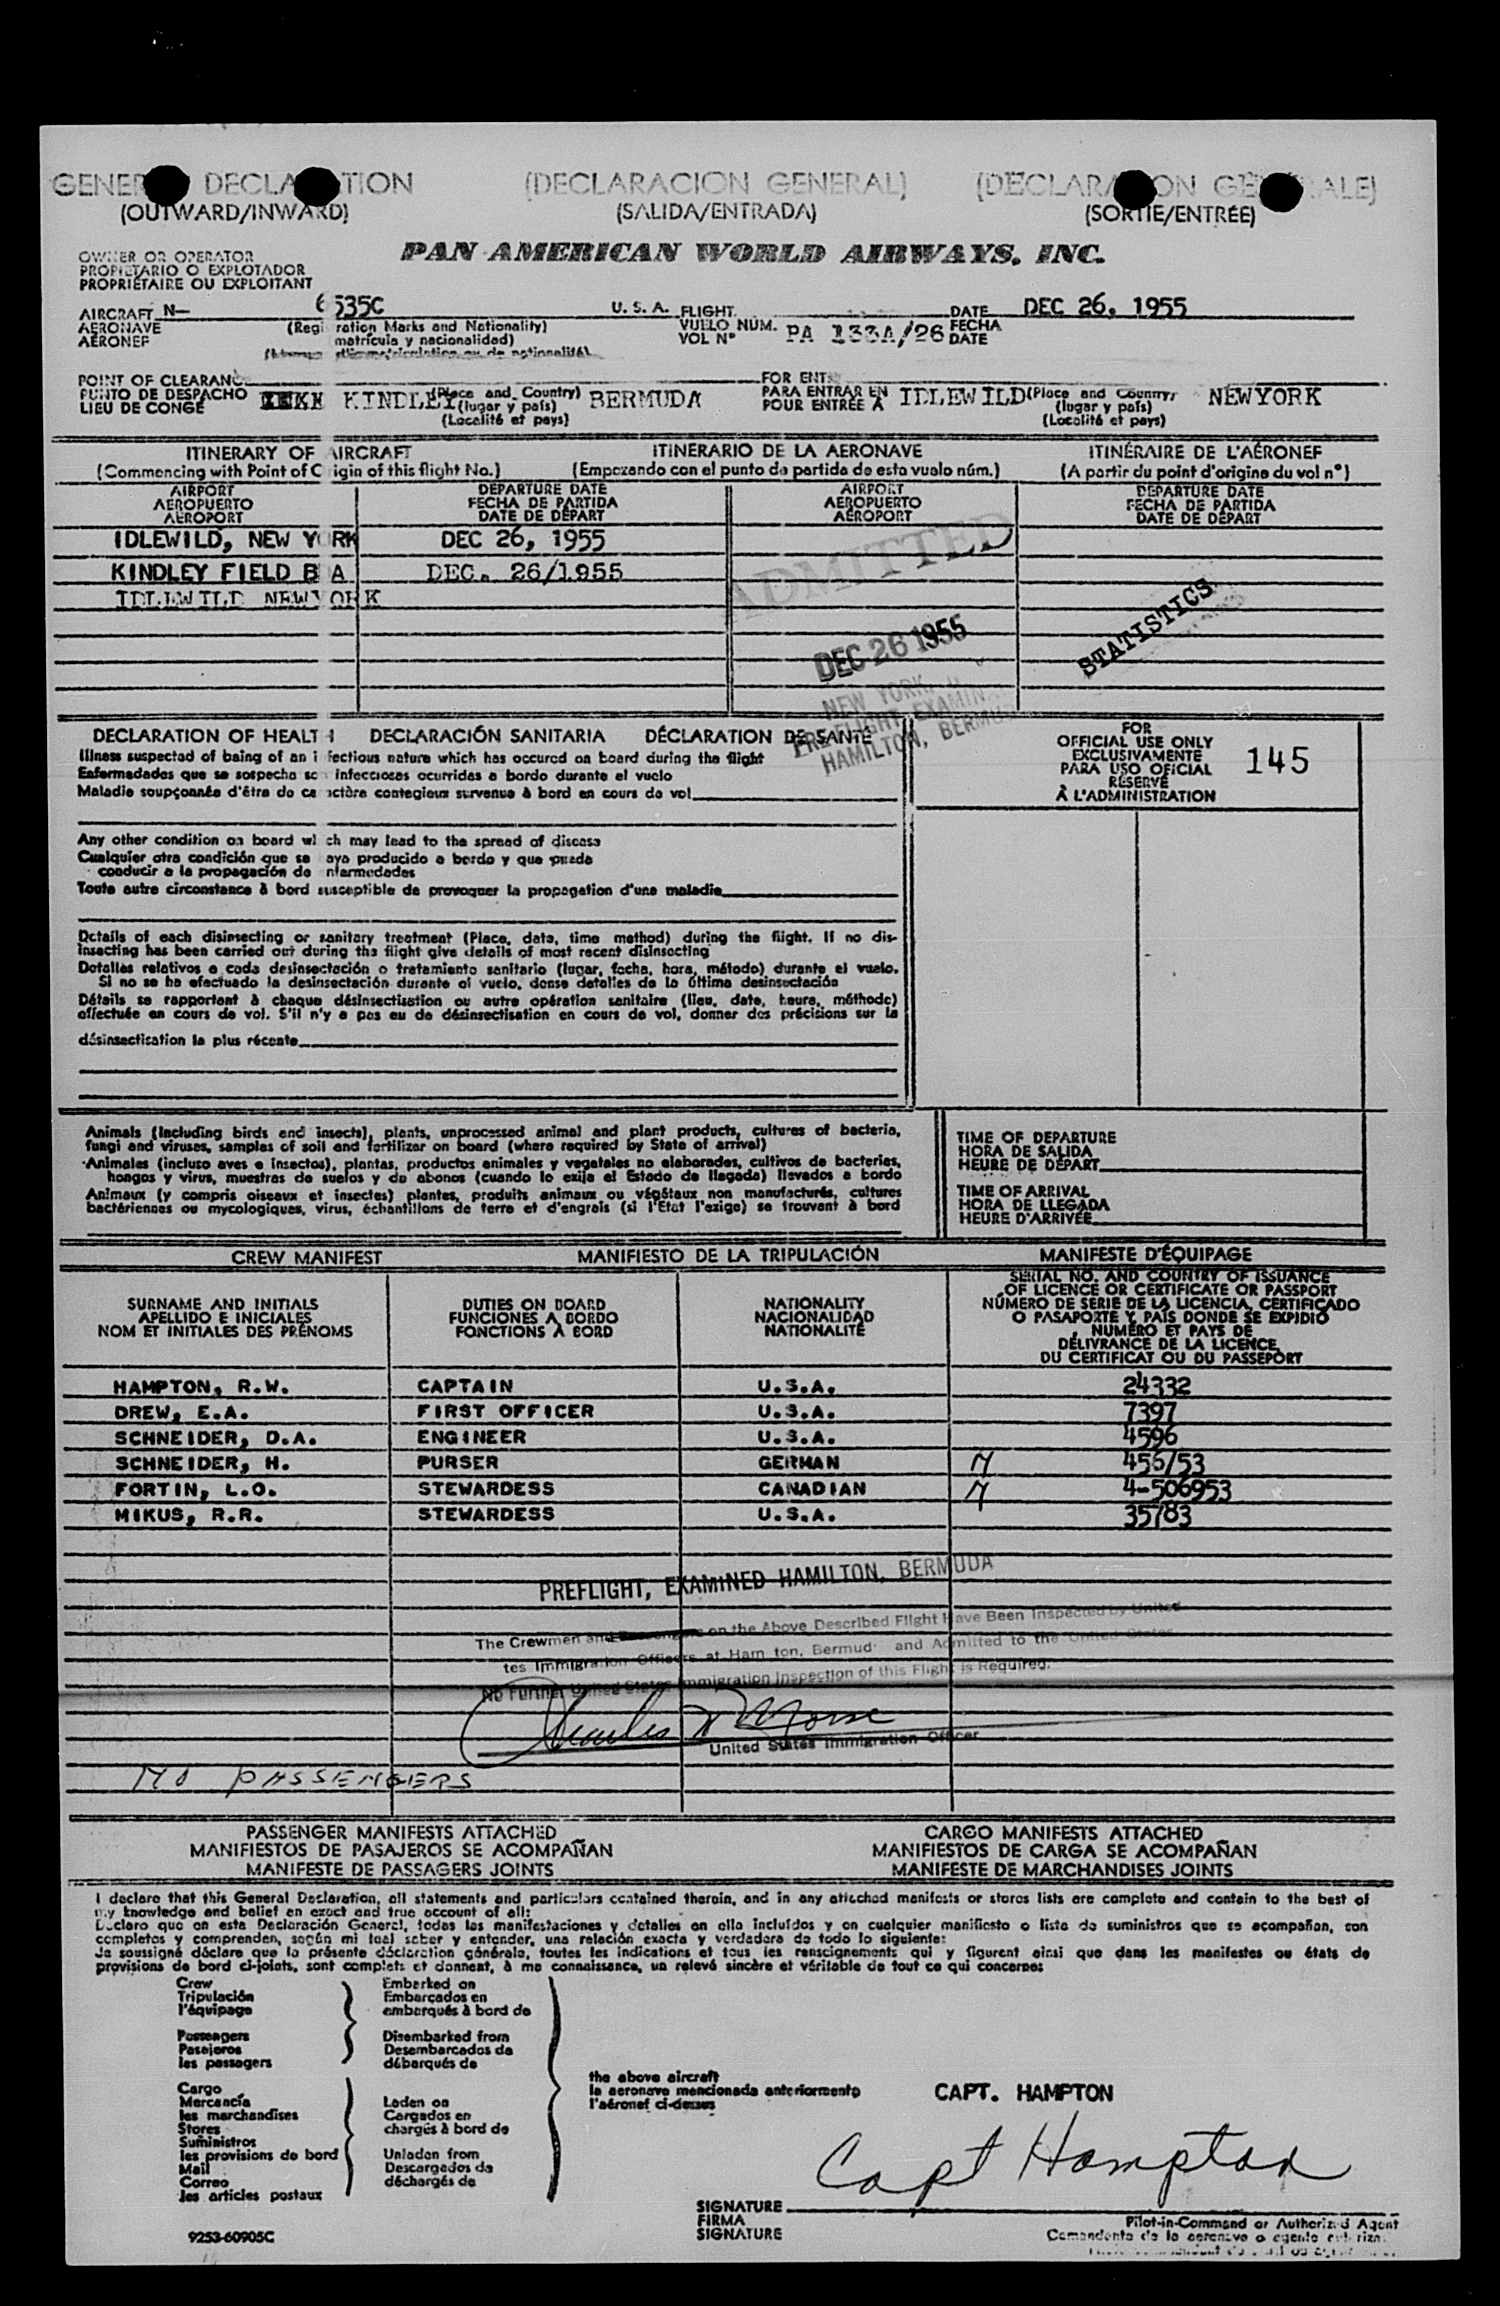 GENERAL DECLARATION (DECLARACION GENERAL) (DÉCLARATION GÉNÉRALE)
(OUTWARD/INWARD) (SALIDA/ENTRADA) (SORTIE/ENTRÉE)
PAN AMERICAN WORLD AIRWAYS, INC.
OWNER OR OPERATOR
PROPIETARIO O EXPLOTADOR
PROPRIÉTAIRE OU EXPLOITANT
AIRCRAFT N— 6535C U. S. A. FLIGHT DATE DEC 26, 1955
AERONAVE (Registration Marks and Nationality) VUELO NÚM. PA 133A/26 FECHA
AÉRONEF matrícula y nacionalidad) VOL Nº DATE
POINT OF CLEARANCE FOR ENT
PUNTO DE DESPACHO KINDLEY (Place and Country) BERMUDA PARA ENTRAR EN IDLEWILD (Place and Country) NEWYORK
LIEU DE CONGÉ (lugar y país) POUR ENTRÉE À (lugar y país)
(Localité et pays) (Localité et pays)
ITINERARY OF AIRCRAFT ITINERARIO DE LA AERONAVE ITINÉRAIRE DE L'AÉRONEF
(Commencing with Point of Origin of this flight No.) (Empezando con el punto de partida de este vuelo núm.) (A partir du point d'origine du vol nº)
AIRPORT DEPARTURE DATE AIRPORT DEPARTURE DATE
AEROPUERTO FECHA DE PARTIDA AEROPUERTO FECHA DE PARTIDA
AÉROPORT DATE DE DÉPART AÉROPORT DATE DE DÉPART
IDLEWILD, NEW YORK DEC 26, 1955
KINDLEY FIELD B A DEC. 26/1955
IDLEWILD NEWYORK
ADMITTED
DEC 26 1955
NEW YORK,
PREFLIGHT EXAMIN
HAMILTON, BERMU
STATISTICS
DECLARATION OF HEALTH DECLARACIÓN SANITARIA DÉCLARATION DE SANTÉ
Illness suspected of being of an infectious nature which has occured on board during the flight
Enfermedades que se sospecha son infecciosas ocurridas a bordo durante el vuelo
Maladie soupçonnée d'être de caractère contagieux survenue à bord en cours de vol
FOR
OFFICIAL USE ONLY
EXCLUSIVAMENTE
PARA USO OFICIAL
RÉSERVÉ
À L'ADMINISTRATION
145
Any other condition on board which may lead to the spread of disease
Cualquier otra condición que se haya producido a bordo y que pueda
conducir a la propagación de enfermedades
Toute autre circonstance à bord susceptible de provoquer la propagation d'une maladie
Details of each disinsecting or sanitary treatment (Place, date, time method) during the flight. If no dis-
insecting has been carried out during the flight give details of most recent disinsecting
Detalles relativos a cada desinsectación o tratamiento sanitario (lugar, fecha, hora, método) durante el vuelo.
Si no se ha efectuado la desinsectación durante el vuelo, dense detalles de la última desinsectación
Détails se rapportant à chaque désinsectisation ou autre opération sanitaire (lieu, date, heure, méthode)
effectuée en cours de vol. S'il n'y a pas eu de désinsectisation en cours de vol, donner des précisions sur la
désinsectisation la plus récente
Animals (including birds and insects), plants, unprocessed animal and plant products, cultures of bacteria,
fungi and viruses, samples of soil and fertilizer on board (where required by State of arrival)
Animales (incluso aves e insectos), plantas, productos animales y vegetales no elaborados, cultivos de bacterias,
hongos y virus, muestras de suelos y de abonos (cuando lo exija el Estado de llegada) llevados a bordo
Animaux (y compris oiseaux et insectes) plantes, produits animaux ou végétaux non manufacturés, cultures
bactériennes ou mycologiques, virus, échantillons de terre et d'engrais (si l'Etat l'exige) se trouvant à bord
TIME OF DEPARTURE
HORA DE SALIDA
HEURE DE DÉPART
TIME OF ARRIVAL
HORA DE LLEGADA
HEURE D'ARRIVÉE
CREW MANIFEST MANIFIESTO DE LA TRIPULACIÓN MANIFESTE D'ÉQUIPAGE
SURNAME AND INITIALS
APELLIDO E INICIALES
NOM ET INITIALES DES PRÉNOMS
DUTIES ON BOARD
FUNCIONES A BORDO
FONCTIONS À BORD
NATIONALITY
NACIONALIDAD
NATIONALITÉ
SERIAL NO. AND COUNTRY OF ISSUANCE
OF LICENCE OR CERTIFICATE OR PASSPORT
NÚMERO DE SERIE DE LA LICENCIA, CERTIFICADO
O PASAPORTE Y PAÍS DONDE SE EXPIDIÓ
NUMÉRO ET PAYS DE
DÉLIVRANCE DE LA LICENCE,
DU CERTIFICAT OU DU PASSEPORT
HAMPTON, R.W. CAPTAIN U.S.A. 24332
DREW, E.A. FIRST OFFICER U.S.A. 7397
SCHNEIDER, D.A. ENGINEER U.S.A. 4596
SCHNEIDER, H. PURSER GERMAN 456/53
FORTIN, L.O. STEWARDESS CANADIAN 4-506953
MIKUS, R.R. STEWARDESS U.S.A. 35783
PREFLIGHT, EXAMINED HAMILTON, BERMUDA
The Crewmen and Passengers on the Above Described Flight Have Been Inspected by United
tes Immigration Officers at Ham ton, Bermud and Admitted to the United States
No Further United States Immigration Inspection of this Flight is Required.
Charles W Morse
United States Immigration Officer
NO PASSENGERS
PASSENGER MANIFESTS ATTACHED CARGO MANIFESTS ATTACHED
MANIFIESTOS DE PASAJEROS SE ACOMPAÑAN MANIFIESTOS DE CARGA SE ACOMPAÑAN
MANIFESTE DE PASSAGERS JOINTS MANIFESTE DE MARCHANDISES JOINTS
I declare that this General Declaration, all statements and particulars contained therein, and in any attached manifests or stores lists are complete and contain to the best of
my knowledge and belief an exact and true account of all:
Declaro que en esta Declaración General, todas las manifestaciones y detalles en ella incluídos y en cualquier manifiesto o lista de suministros que se acompañan, son
completos y comprenden, según mi leal saber y entender, una relación exacta y verdadera de todo lo siguiente:
Je soussigné déclare que la présente déclaration générale, toutes les indications et tous les renseignements qui y figurent ainsi que dans les manifestes ou états de
provisions de bord ci-joints, sont complets et donnent, à ma connaissance, un relevé sincère et véritable de tout ce qui concerne:
Crew Embarked on
Tripulación Embarcados en
l'équipage embarqués à bord de
Passengers Disembarked from
Pasajeros Desembarcados de
les passagers débarqués de
the above aircraft
la aeronave mencionada anteriormente
l'aéronef ci-dessus
Cargo
Mercancía Laden on
les marchandises Cargados en
Stores chargés à bord de
Suministros
les provisions de bord Unladen from
Mail Descargados de
Correo déchargés de
les articles postaux
CAPT. HAMPTON
Capt Hampton
SIGNATURE
FIRMA
SIGNATURE
Pilot-in-Command or Authorized Agent
Comandante de la aeronave o agente
9253-60905C